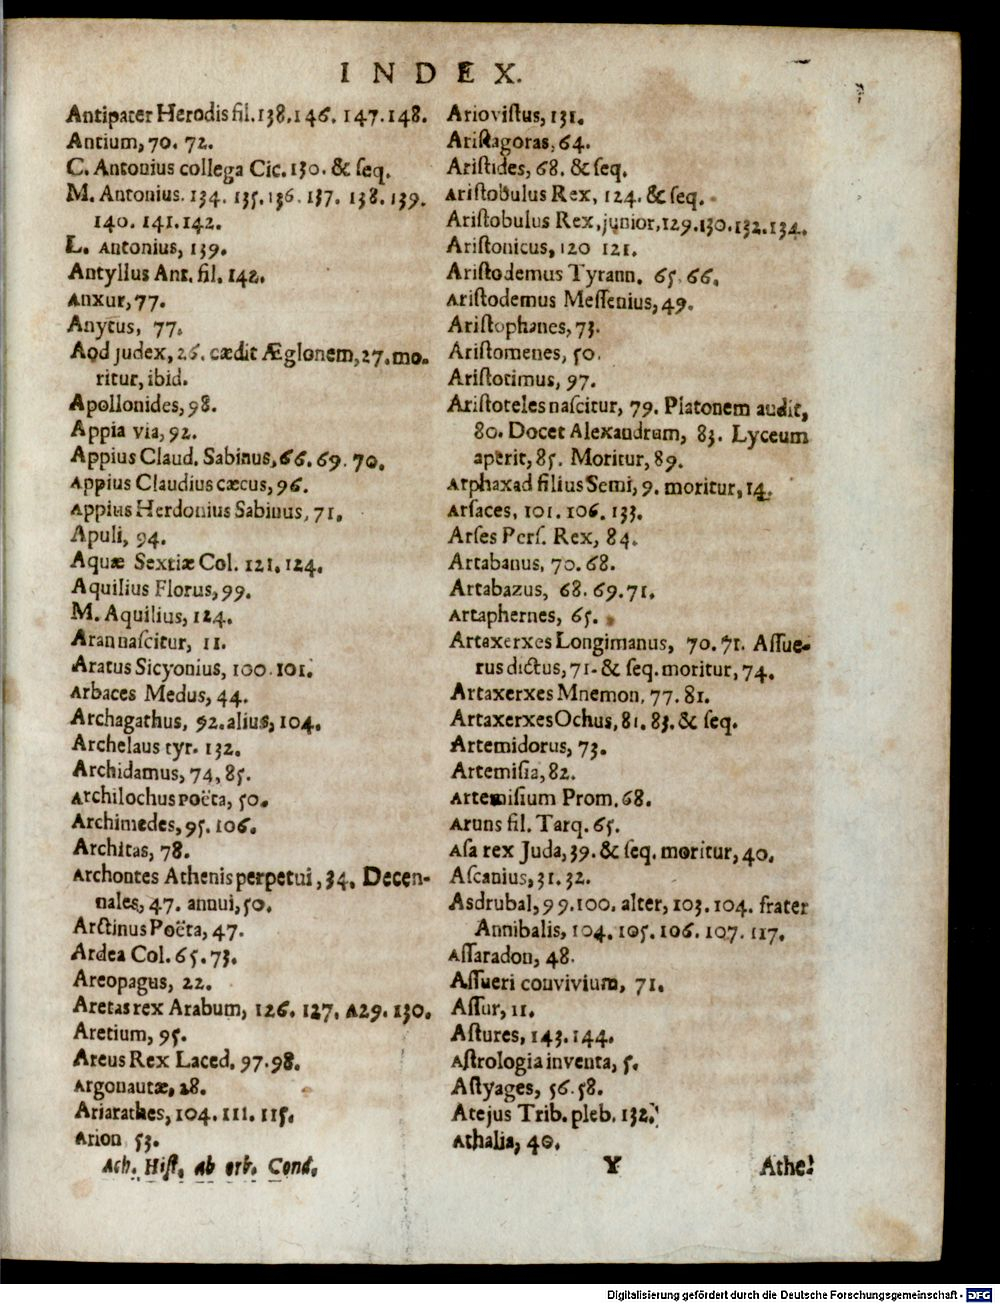 INDEX.
Antipater Herodis fil. 138. 146. 147. 148.
Antium, 70. 72.
C. Antonius collega Cic. 130. & seq.
M. Antonius. 134. 135. 136. 137. 138. 139.
140. 141. 142.
L. Antonius, 139.
Antyllus Ant. fil. 142.
Anxur, 77.
Anytus, 77.
Aod judex, 26. cædit Æglonem, 27. mo-
ritur, ibid.
Apollonides, 98.
Appia via, 92.
Appius Claud. Sabinus, 66. 69. 70.
Appius Claudius cæcus, 96.
Appius Herdonius Sabinus, 71.
Apuli, 94.
Aquæ Sextiæ Col. 121. 124.
Aquilius Florus, 99.
M. Aquilius, 124.
Aran nascitur, 11.
Aratus Sicyonius, 100. 101.
Arbaces Medus, 44.
Archagathus, 92. alius, 104.
Archelaus tyr. 132.
Archidamus, 74, 85.
Archilochus Poëta, 50.
Archimedes, 95. 106.
Architas, 78.
Archontes Athenis perpetui, 34. Decen-
nales, 47. annui, 50.
Arctinus Poëta, 47.
Ardea Col. 65. 73.
Areopagus, 22.
Aretas rex Arabum, 126. 127. 129. 130.
Aretium, 95.
Areus Rex Laced. 97. 98.
Argonautæ, 28.
Ariarathes, 104. 111. 115.
Arion 53.
Ach. Hist. ab orb. Cond.
Ariovistus, 131.
Aristagoras, 64.
Aristides, 68. & seq.
Aristobulus Rex, 124. & seq.
Aristobulus Rex, junior, 129. 130. 132. 134.
Aristonicus, 120 121.
Aristodemus Tyrann. 65. 66.
Aristodemus Messenius, 49.
Aristophanes, 73.
Aristomenes, 50.
Aristotimus, 97.
Aristoteles nascitur, 79. Platonem audit,
80. Docet Alexandrum, 83. Lyceum
aperit, 85. Moritur, 89.
Arphaxad filius Semi, 9. moritur, 14.
Arsaces, 101. 106. 133.
Arses Pers. Rex, 84.
Artabanus, 70. 68.
Artabazus, 68. 69. 71.
Artaphernes, 65.
Artaxerxes Longimanus, 70. 71. Assue-
rus dictus, 71. & seq. moritur, 74.
Artaxerxes Mnemon, 77. 81.
Artaxerxes Ochus, 81. 83. & seq.
Artemidorus, 73.
Artemisia, 82.
Artemisium Prom. 68.
Aruns fil. Tarq. 65.
Asa rex Juda, 39. & seq. moritur, 40.
Ascanius, 31. 32.
Asdrubal, 99. 100. alter, 103. 104. frater
Annibalis, 104. 105. 106. 107. 117.
Assaradon, 48.
Assueri convivium, 71.
Assur, 11.
Astures, 143. 144.
Astrologia inventa, 5.
Astyages, 56. 58.
Atejus Trib. pleb. 132.
Athalia, 40.
Y Athe-
Digitalisierung gefördert durch die Deutsche Forschungsgemeinschaft - DFG